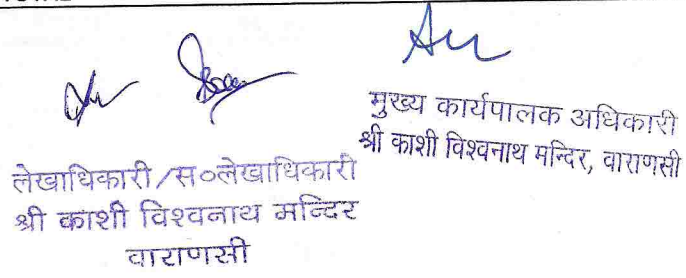 लेखाधिकारी/स०लेखाधिकारी
श्री काशी विश्वनाथ मन्दिर
वाराणसी
मुख्य कार्यपालक अधिकारी
श्री काशी विश्वनाथ मन्दिर, वाराणसी